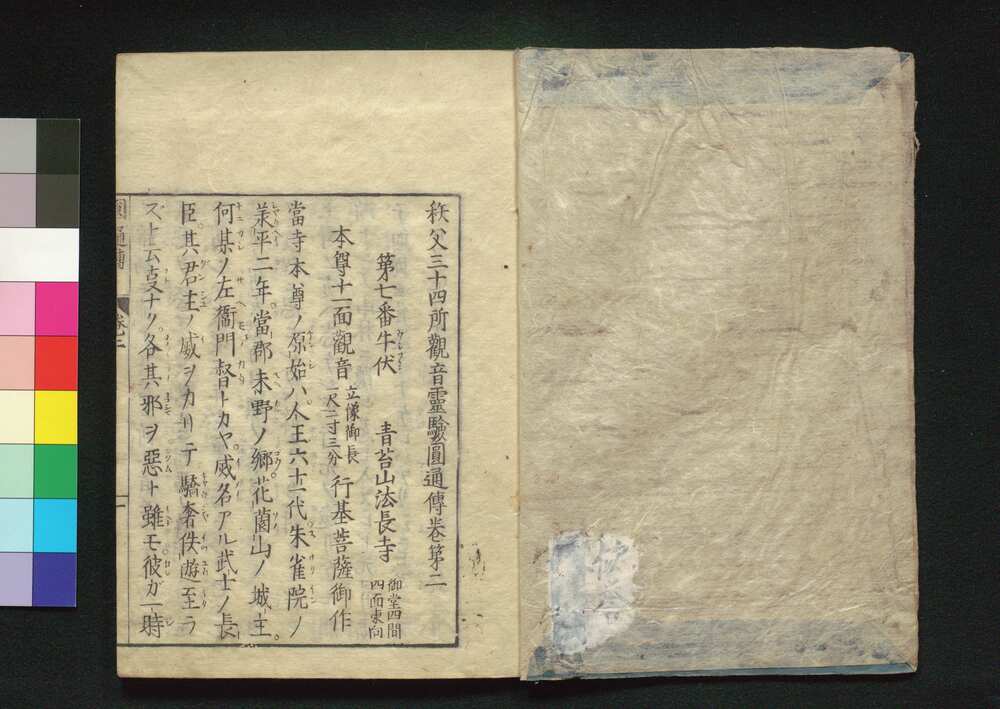 秩父三十四所觀音靈驗圓通傳卷第二
第七番牛伏　青苔山法長寺　御堂四間四面東向
本尊十一面觀音　立像御長一尺二寸三分　行基菩薩御作
當寺本尊ノ原始ハ人王六十一代朱雀院ノ
羕平二年當郡末野ノ郷花薗山ノ城主
何某ノ左衞門督トカヤ威名アル武士ノ長
臣其君主ノ威ヲカリテ驕奢佚游至ラ
ズト云ヿナク各其邪ヲ惡ト雖モ彼ガ一時
圓通傳　卷二